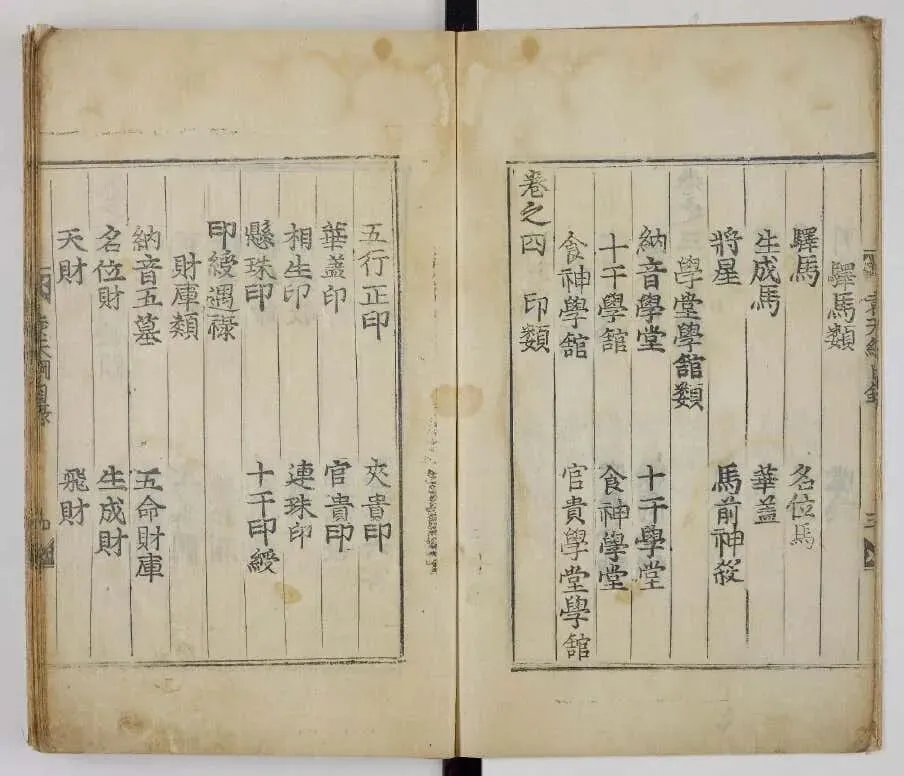 驛馬類
驛馬 名位馬
生成馬 華盖
將星 馬前神殺
學堂學舘類
納音學堂 十干學堂
十干學舘 食神學堂
食神學舘 官貴學堂學舘
卷之四 印類
五行正印 夾貴印
華盖印 官貴印
相生印 連珠印
懸珠印 十干印綬
印綬遇祿
財庫類
納音五墓 五命財庫
名位財 生成財
天財 飛財